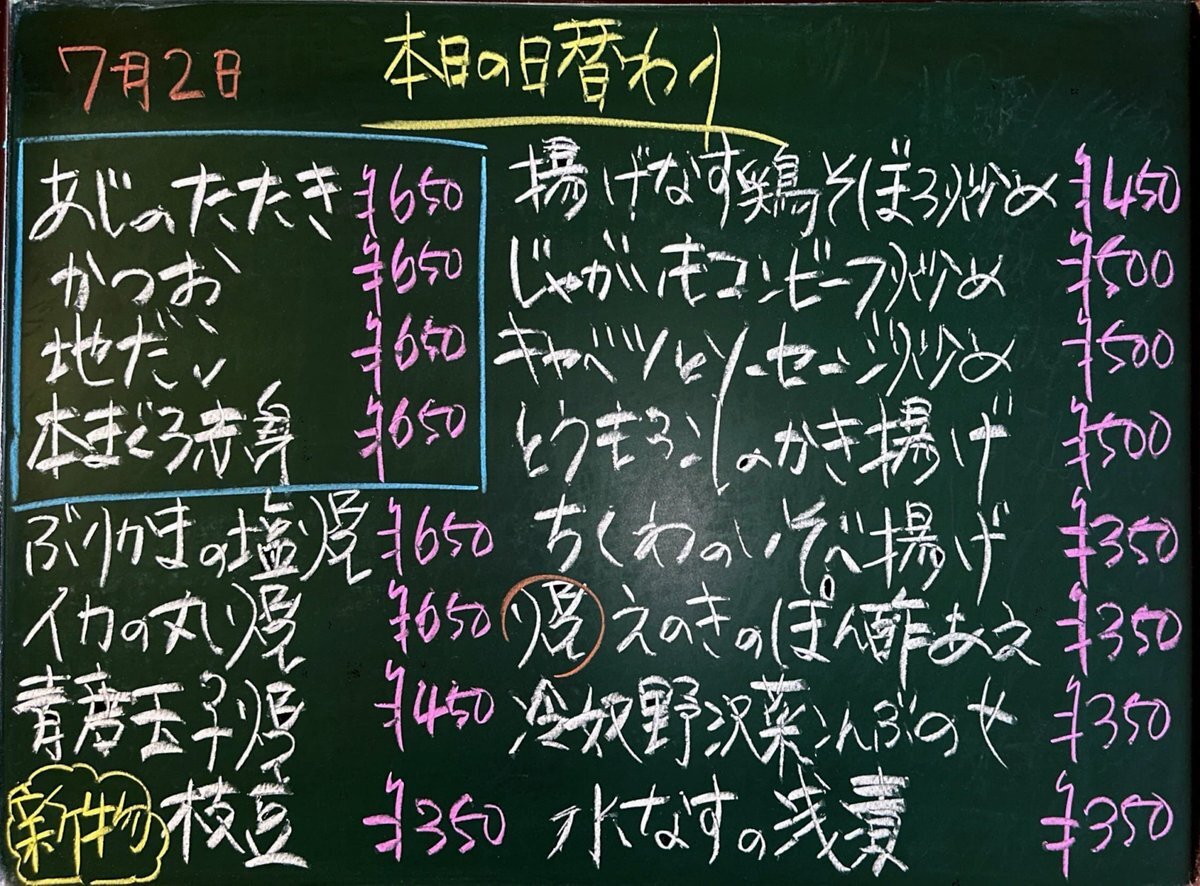 7月2日
本日の日替わり
あじのたたき ¥650
かつお ¥650
地だい ¥650
本まぐろ赤身 ¥650
ぶりかまの塩焼 ¥650
イカの丸焼 ¥650
青唐玉子焼 ¥450
新物 枝豆 ¥350
揚げなす鶏そぼろ炒め ¥450
じゃがいもコンビーフ炒め ¥500
キャベツとソーセージ炒め ¥500
とうもろこしのかき揚げ ¥500
ちくわのいそべ揚げ ¥350
焼 えのきのぽん酢あえ ¥350
冷奴野沢菜こんぶのせ ¥350
水なすの浅漬 ¥350